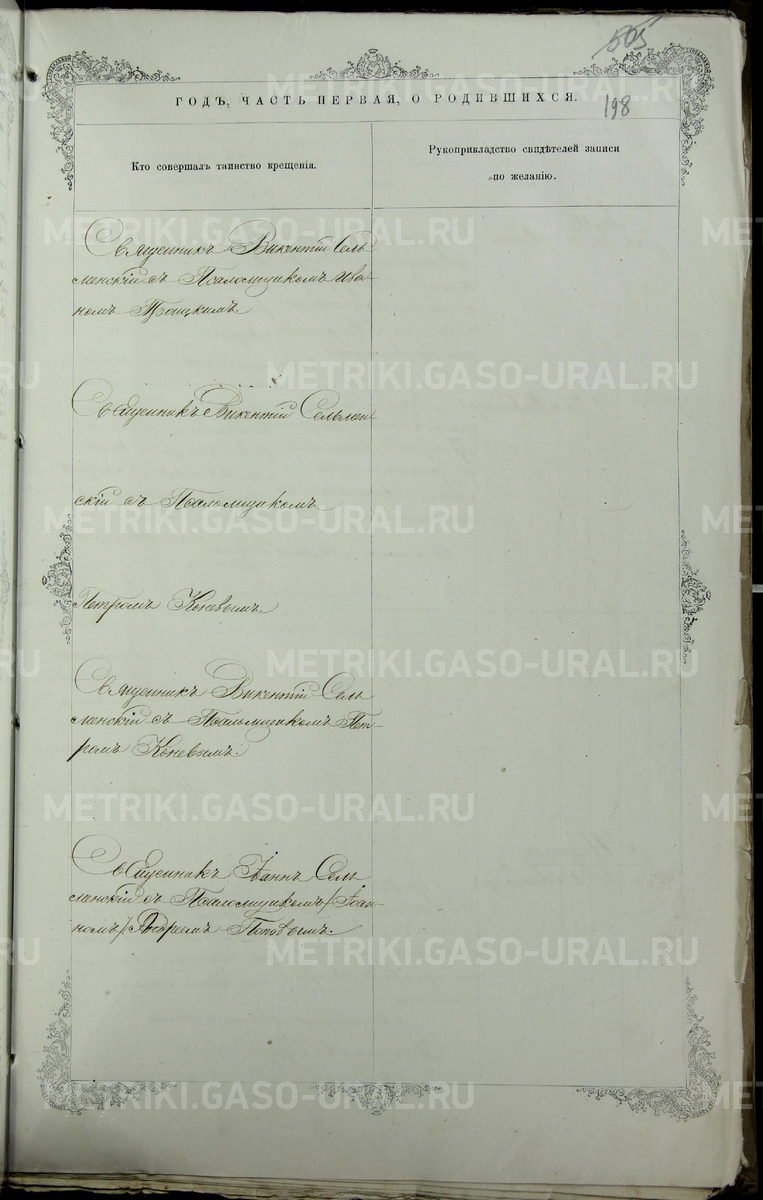 505
ГОДЪ, ЧАСТЬ ПЕРВАЯ, О РОДИВШИХСЯ.
198
Кто совершалъ таинство крещенія.
Рукоприкладство свидѣтелей записи
по желанію.
Священникъ Викентій Сель
менскій съ Псаломщикомъ Ива-
номъ Троицкимъ.
Священникъ Викентій Сельмен
скій съ Псаломщикомъ
Петромъ Коневымъ
Священникъ Викентій Сель
менскій съ Псаломщикомъ Пет-
ромъ Коневымъ.
Священникъ Іоаннъ Сель
менскій съ Псаломщикомъ /Іоан-
номъ/ Андреемъ Поповымъ.
METRIKI.GASO-URAL.RU